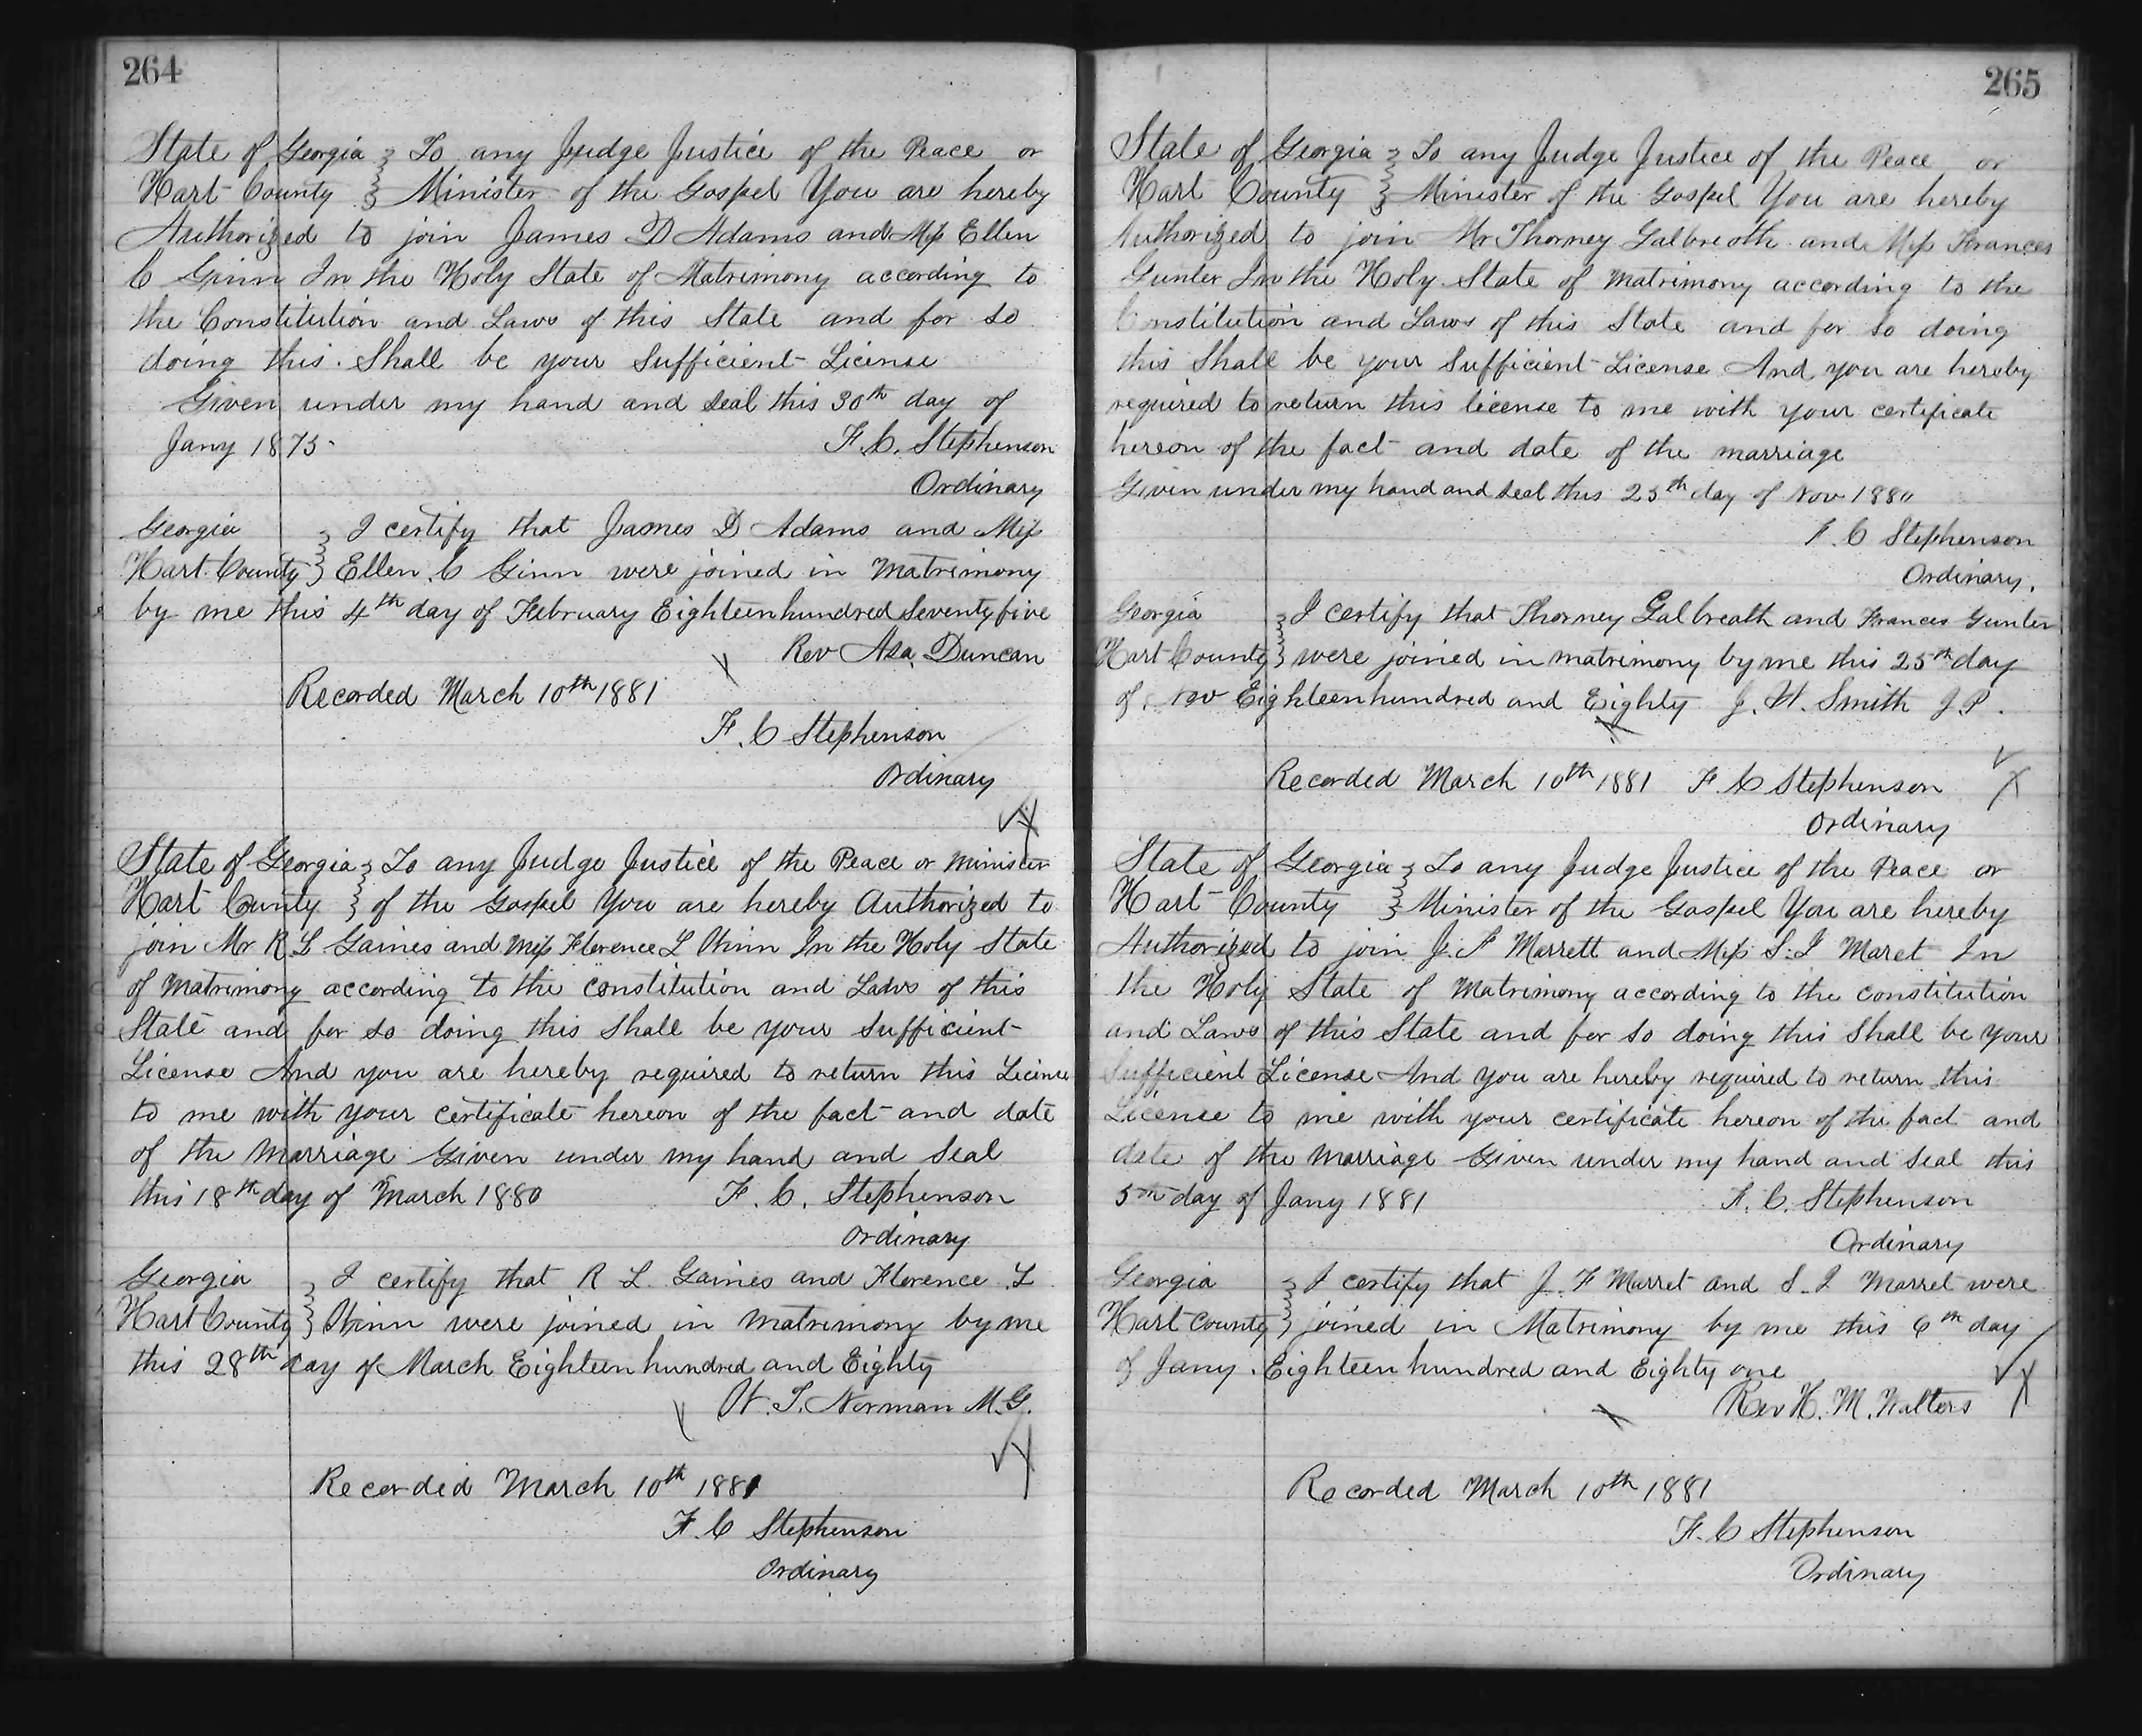 264
State of Georgia } To any Judge Justice of the Peace or
Hart County } Minister of the Gospel You are hereby
Authorized to join James D Adams and Miss Ellen
C Ginn In the Holy State of Matrimony according to
the Constitution and Laws of this State and for so
doing this Shall be your Sufficient License
Given under my hand and seal this 30th day of
Jany 1875
F. C. Stephenson
Ordinary
Georgia } I certify that James D Adams and Miss
Hart County } Ellen C Ginn were joined in Matrimony
by me this 4th day of February Eighteen hundred Seventy five
Rev Asa Duncan
Recorded March 10th 1881
F. C Stephenson
Ordinary
State of Georgia } To any Judge Justice of the Peace or Minister
Hart County } of the Gospel You are hereby Authorized to
join Mr R L Gaines and Miss Florence L Winn In the Holy State
of Matrimony according to the constitution and Laws of this
State and for so doing this Shall be your Sufficient
License And you are hereby required to return this License
to me with your certificate hereon of the fact and date
of the Marriage Given under my hand and Seal
this 18th day of March 1880 F. C. Stephenson
Ordinary
Georgia } I certify that R L Gaines and Florence L
Hart County } Winn were joined in Matrimony by me
this 28th day of March Eighteen hundred and Eighty
W. T. Norman M. G.
Recorded March 10th 1881
F. C Stephenson
Ordinary
265
State of Georgia } To any Judge Justice of the Peace or
Hart County } Minister of the Gospel You are hereby
Authorized to join Mr Thorney Galbreath and Miss Frances
Gunter In the Holy State of Matrimony according to the
Constitution and Laws of this State and for so doing
this Shall be your Sufficient License And you are hereby
required to return this license to me with your certificate
hereon of the fact and date of the marriage
Given under my hand and seal this 25th day of Nov 1880
F. C Stephenson
Ordinary.
Georgia } I certify that Thorney Galbreath and Frances Gunter
Hart County } were joined in matrimony by me this 25th day
of Nov Eighteen hundred and Eighty J. H. Smith J. P.
Recorded March 10th 1881 F. C Stephenson
Ordinary
State of Georgia } To any Judge Justice of the Peace or
Hart County } Minister of the Gospel You are hereby
Authorized to join J. F Marrett and Miss S. I Maret In
the Holy State of Matrimony according to the constitution
and Laws of this State and for so doing this Shall be your
Sufficient License And you are hereby required to return this
License to me with your certificate hereon of the fact and
date of the Marriage Given under my hand and seal this
5th day of Jany 1881 F. C. Stephenson
Ordinary
Georgia } I certify that J. F Marret and S. I Marret were
Hart County } joined in Matrimony by me this 6th day
of Jany. Eighteen hundred and Eighty one
Rev H. M. Walters
Recorded March 10th 1881
F. C Stephenson
Ordinary